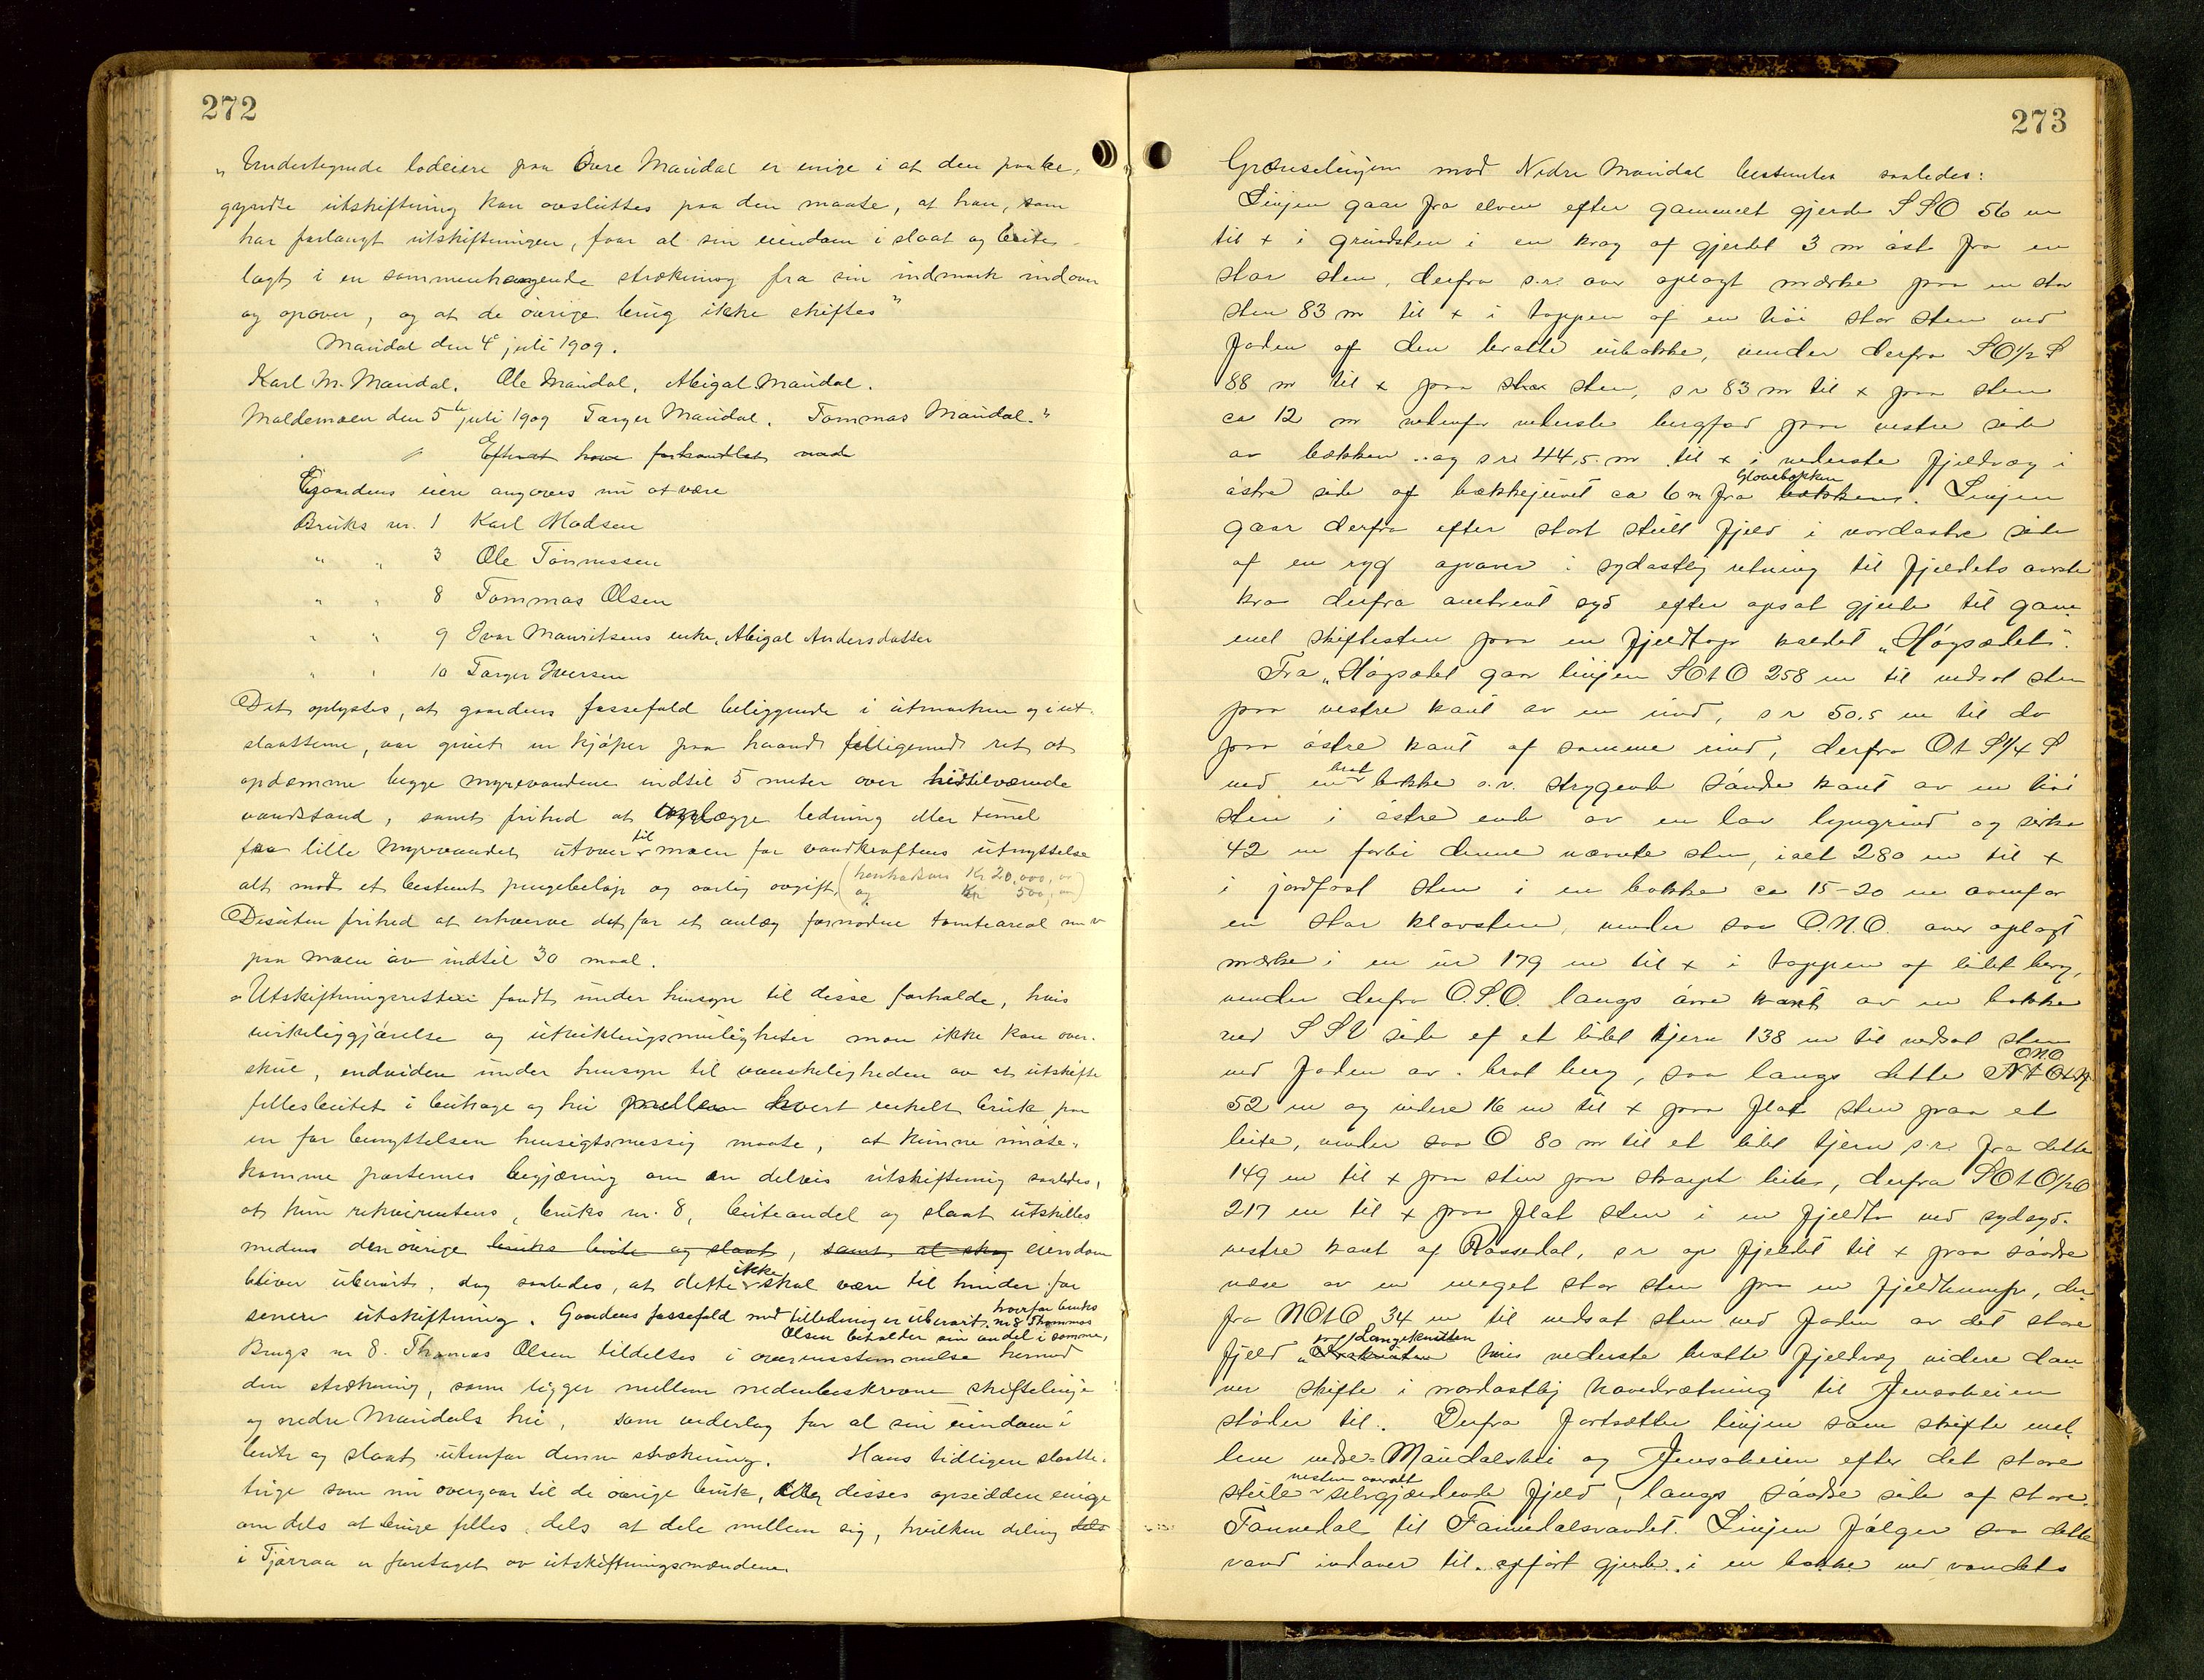 272
„Undertegnede lodeiere paa Övre Maudal er enige i at den paabe-
gyndte utskiftning kan avsluttes paa den maate, at han, som
har forlangt utskiftningen, faar al sin eiendom i slaat og beite
lagt i en sammenhængende strækning fra sin indmark indover
og opover, og at de övrige brug ikke skiftes"
Maudal den 4e juli 1909.
Karl M. Maudal. Ole Maudal. Abigal Maudal.
Maldemoen den 5te juli 1909 Tarjer Maudal. Tommas Maudal."
Efterat have forhandlet med
Gaardens eiere angaves nu at være
Bruks nr. 1 Karl Madsen
" " 3 Ole Tönnessen
" " 8 Tommas Olsen
" " 9 Ivar Mauritsens enke, Abigal Andersdatter
" " 10 Tarjer Iversen
Det oplystes, at gaardens fossefald beliggende i utmarken og i ut-
slaatterne, var givet en kjöper paa haand tilligemed ret at
opdæmme begge myrevandene indtil 5 meter over hidtilværende
vandstand, samt frihed at anlægge ledning eller tunnel
fra lille Myrevandet utover til moen for vandkraftens utnyttelse
alt mod et bestemt pengebelöp og aarlig avgift, (henholdsvis Kr 20.000,00
og Kr 500,00)
Desuten frihed at erhverve det for et anlæg fornödne tomteareal m v
paa moen av indtil 30 maal.
Utskiftningsretten fandt under hensyn til disse forholde, hvis
virkeliggjörelse og utviklingsmuligheter man ikke kan over-
skue, endvidere under hensyn til vanskeligheden av at utskifte
fellesbeitet i beitehage og hei mellem hvert enkelt bruk paa
en for benyttelsen hensigtsmessig maate, at kunne imöte-
komme parternes begjæring om en delvis utskiftning saaledes,
at kun rekvirentens, bruks nr. 8, beiteandel og slaat utskilles
medens den övrige bruks beite og slaat, samt al skog eiendom
bliver uberört, dog saaledes, at dette ikke skal være til hinder for
senere utskiftning. Gaardens fossefald med tilledning er uberört, hvorfor bruks nr 8 Thommas
Olsen beholder sin andel i samme,
Brugs nr 8. Thomas Olsen tildeltes i overensstemmelse hermed
den strækning, som ligger mellem nedenbeskrevne skiftelinje
og nedre Maudals hei, som vederlag for al sin eiendom i
beite og slaat utenfor denne strækning. Hans tidligere slaatte-
teige som nu overgaar til de övrige bruk, blev disses opsiddere enige
om dels at bruge felles dels at dele mellem sig, hvilken deling dels
i Tjörraa er foretaget av utskiftningsmændene
273
Grænselinjen mod Nedre Maudal bestemtes saaledes:
Linjen gaar fra elven efter gammelt gjerde S S O 56 m
til + i grundsten i en krog af gjerdet 3 m öst fra en
stor sten, derfra s.r. over oplagt merke paa en stor
sten 83 m til + i toppen af en höi stor sten ved
foden af den bratte urbakke, vender derfra S O 1/2 S
88 m til + paa stor sten, s r 83 m til + paa sten
ca 12 m nedenfor nederste bergfod paa vestre side
av bækken og s r. 44,5 m til + i nederste fjeldvæg i
östre side af bækkejuvet ca 6 m fra Glovebækken bækken. Linjen
gaar derfra efter stort steilt fjeld i nordöstre side
af en ryg opover i sydöstlig retning til fjeldets överste
kro derfra omtrent syd efter opsat gjerde til gam-
mel skiftesten paa en fjeldtop kaldet „Högsædet".
Fra „Högsædet gaar linjen SOtO 258 m til nedsat sten
paa vestre kant av en rind, s r 50.5 m til do
paa östre kant af samme rind, derfra Ot S 1/4 S
ned en brat bakke s.r. strygende söndre kant av en höi
sten i östre ende av en lav lyngrind og cirka
42 m forbi denne nævnte sten, ialt 280 m til +
i jordfast sten i en bakke ca 15-20 m ovenfor
en stor klovsten, vender saa O.N.O. over oplagt
merke i en ur 179 m til + i toppen af lidet berg,
vender derfra O.S.O. langs övre kant av en bakke
ved S S V side af et lidet tjern 138 m til nedsat sten
ved foden av brat berg, saa langs dette ONO
52 m og videre 16 m til + paa flat sten paa et
leite, vender saa O 80 m til et lidet tjern s.r. fra dette
149 m til + paa sten paa skarpt leite, derfra SOtO 1/2 O
217 m til + paa flat sten i en fjeldto ved sydsyd-
vestre kant af Rossedal, s r op fjeldet til + paa söndre
nöse av en meget stor sten paa en fjeldkump, der-
fra NOtO 34 m til nedsat sten ved foden av det store
fjeld Langeknuten hvis nederste bratte fjeldvæg videre dan-
ner skifte i nordöstlig hovedretning til Jensaheien
stöder til. Derfra fortsætter linjen som skifte mel-
lem nedre Maudalshei og Jensaheien efter det store
steile nesten overalt selvgjerdende fjeld, langs söndre side af store
Fannedal til Fannedalsvandet. Linjen fölger saa dette
vand indover til opfört gjerde i en bakke ved vandets